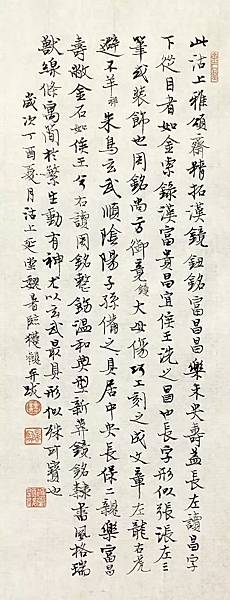 此沽上雅頌齋精拓漢鏡鈕銘富昌昌樂未央壽益長左讀昌字
下從目者如金索錄漢富貴昌宜侯王洗之昌也長字形似張張左三
筆或裝飾也周銘尚方御竟大毋傷巧工刻之成文章左龍右虎
避不羊朱鳥玄武順陰陽子孫備之具居中央長保二親樂富昌
壽敝金石如侯王兮右讀周銘整飭溫和典型新莽鏡銘隸書風格瑞
獸線條寓簡於繁生動有神尤以玄武最具形似殊可寶也
歲次丁酉夏月沽上延堂觀暑臨獲觀并識